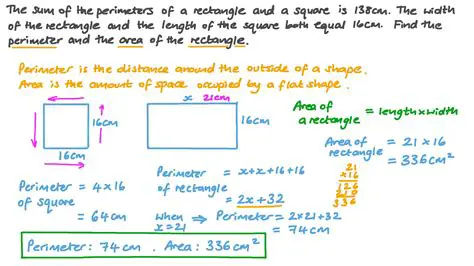 The sum of the perimeters of a rectangle and a square is 138cm. The width
of the rectangle and the length of the square both equal 16cm. Find the
perimeter and the area of the rectangle.
Perimeter is the distance around the outside of a shape.
Area is the amount of space occupied by a flat shape.
x 21cm
16cm
16cm
16cm
Area of
a rectangle = length x width
Perimeter = 4 x 16
of square
= 64cm
Perimeter = x+x+16+16
of rectangle
= 2x+32
when
x=21
⇒ Perimeter = 2x21+32
= 74cm
Area of
rectangle = 21 x 16
= 336cm²
21
x16
126
210
336
Perimeter: 74cm. Area: 336cm²